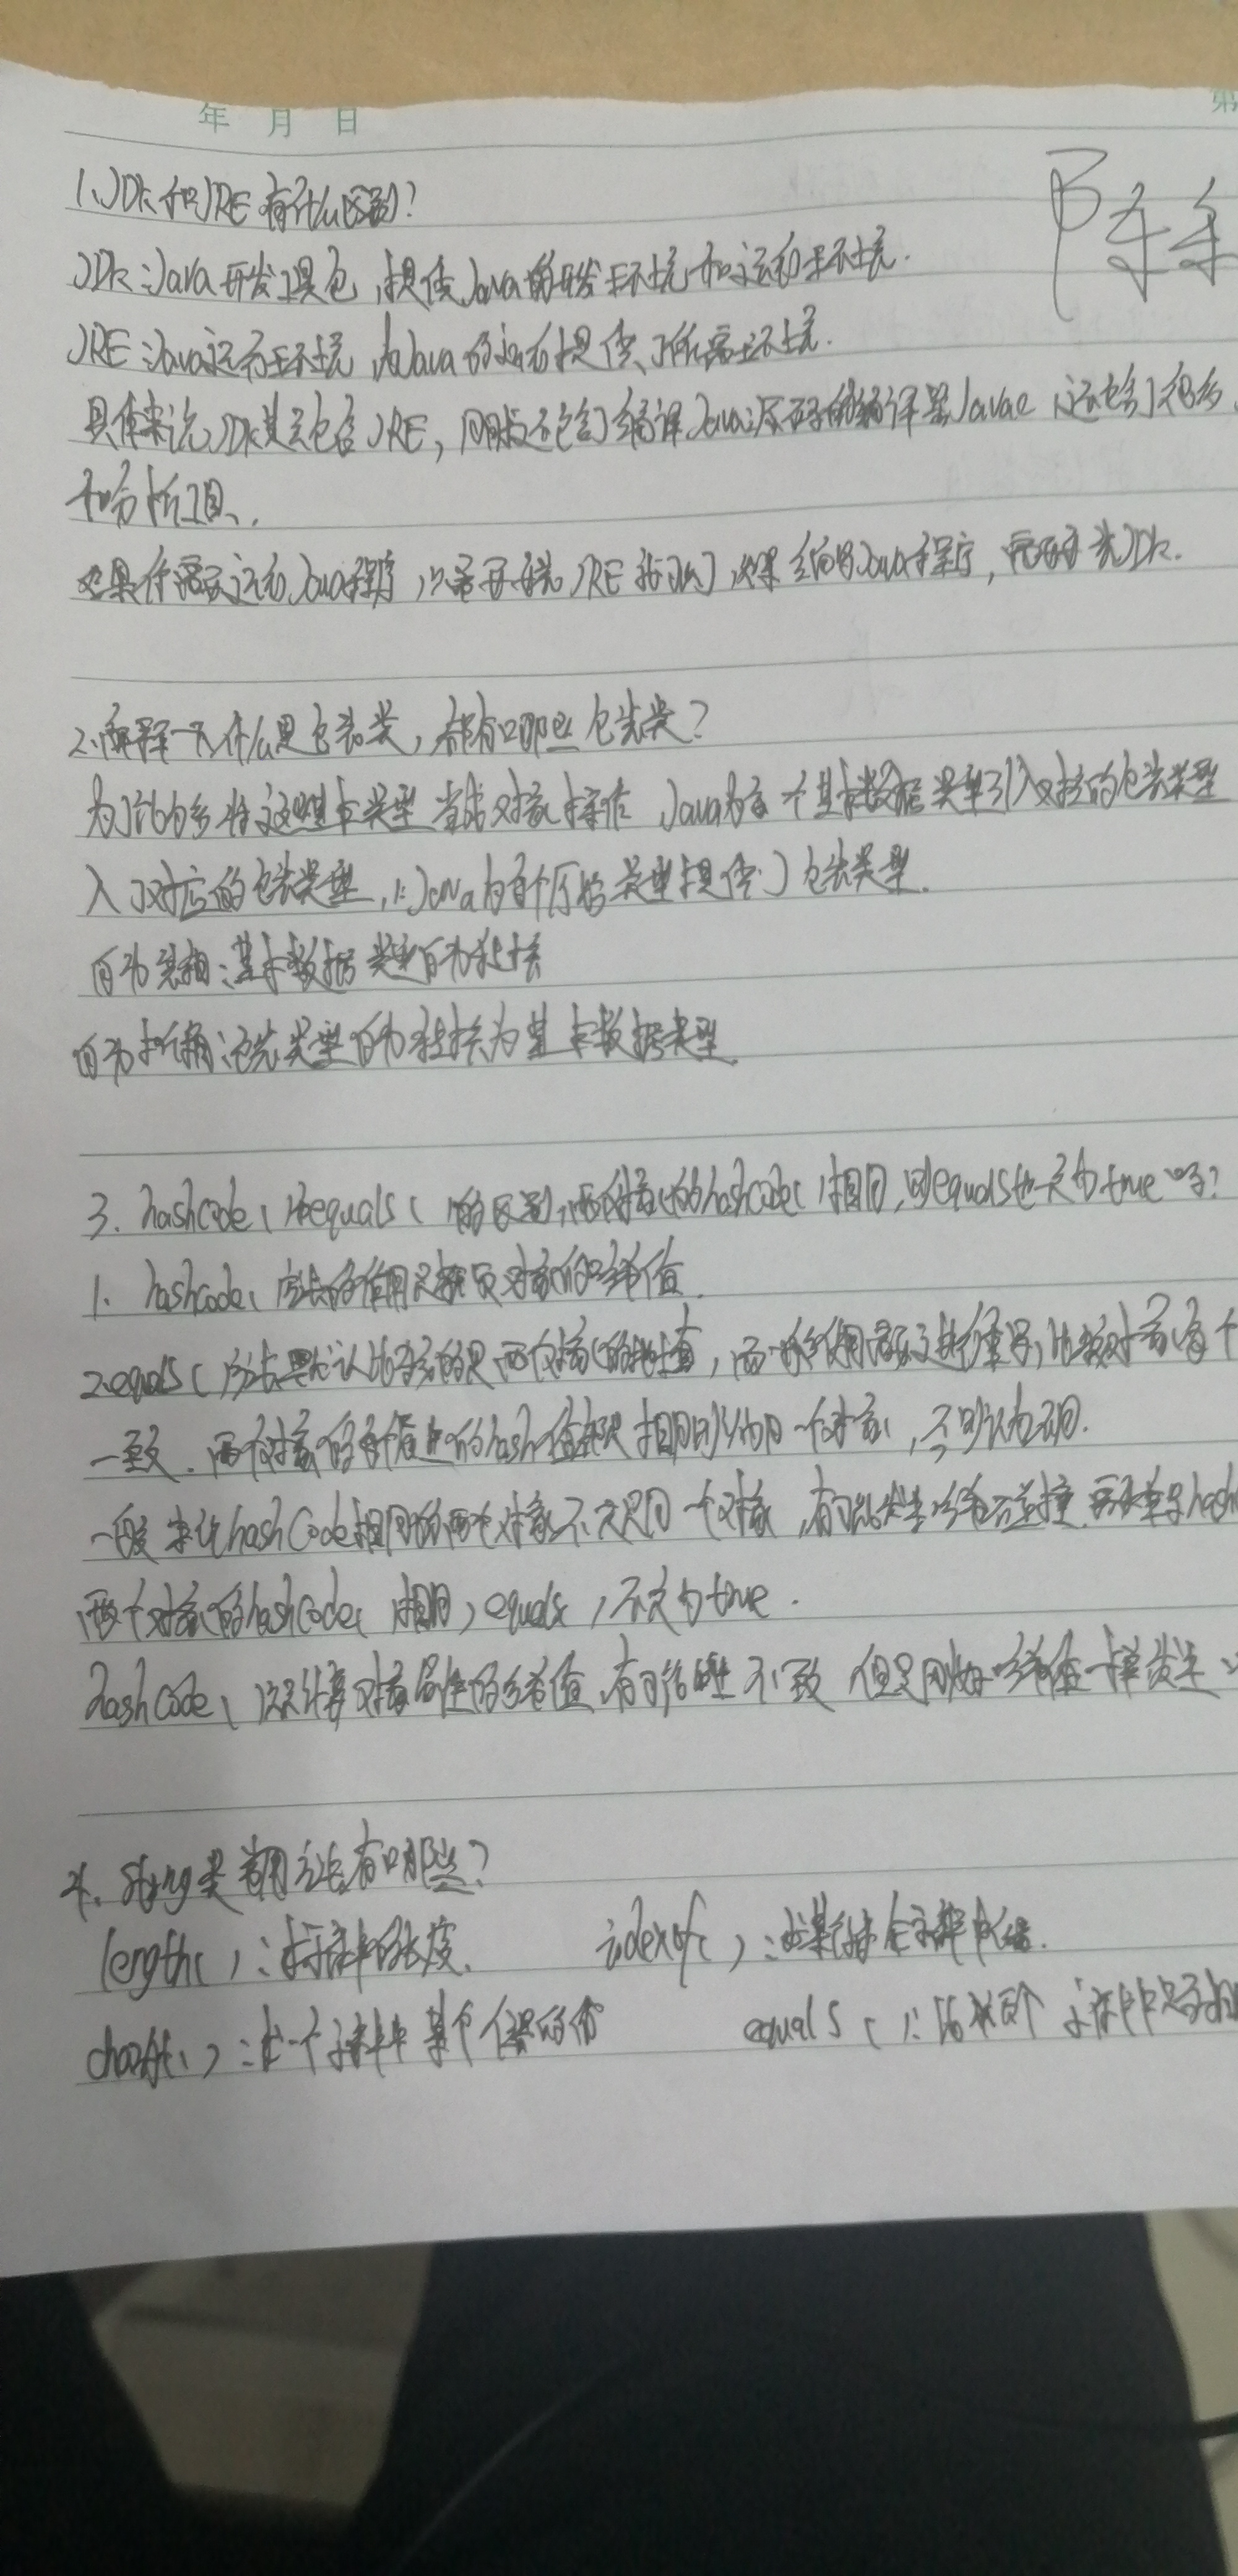 年 月 日
第
陈
1、JDK和JRE有什么区别?
JDK:Java开发工具包,提供Java的开发环境和运行环境.
JRE:Java运行环境,为Java的运行提供了所需环境.
具体来说JDK其实包含JRE,同时还包含了编译Java源码的编译器Javac,还包含了很多
和分析工具.
如果你需要运行Java程序,只需要安装JRE就可以了,如果编写Java程序,需要安装JDK.
2、解释一下什么是包装类,都有哪些包装类?
为了能够将这些基本类型当成对象操作 Java为每个基本数据类型引入对应的包装类型
入了对应的包装类型, Java为每个原始类型提供了包装类型.
自动装箱:基本数据类型自动转换
自动拆箱:包装类型自动转换为基本数据类型
3. hashCode( )和equals( )的区别,两个对象的hashCode( )相同,则equals也一定为true吗?
1. hashcode( )方法的作用是获取对象的哈希值.
2.equals( )方法默认比较的是两个对象的地址值,而 进行重写,比较对象每个
一致. 两个对象的 hash值 相同则认为同一个对象,否则认为不同.
一般来说hashCode相同的两个对象不一定是同一个对象,有可能发生哈希碰撞, hash
两个对象的hashCode( )相同,equals( )不一定为true.
hashCode( )只是计算对象属性的哈希值,有可能 不一致 但是 哈希值一样 发生
4. String类常用方法有哪些?
length( ):求字符串的长度. idexof( ):求某 字符串 位置.
charAt( ):求一个字符串中某个位置的值 equals( ):比较两个字符串是否相